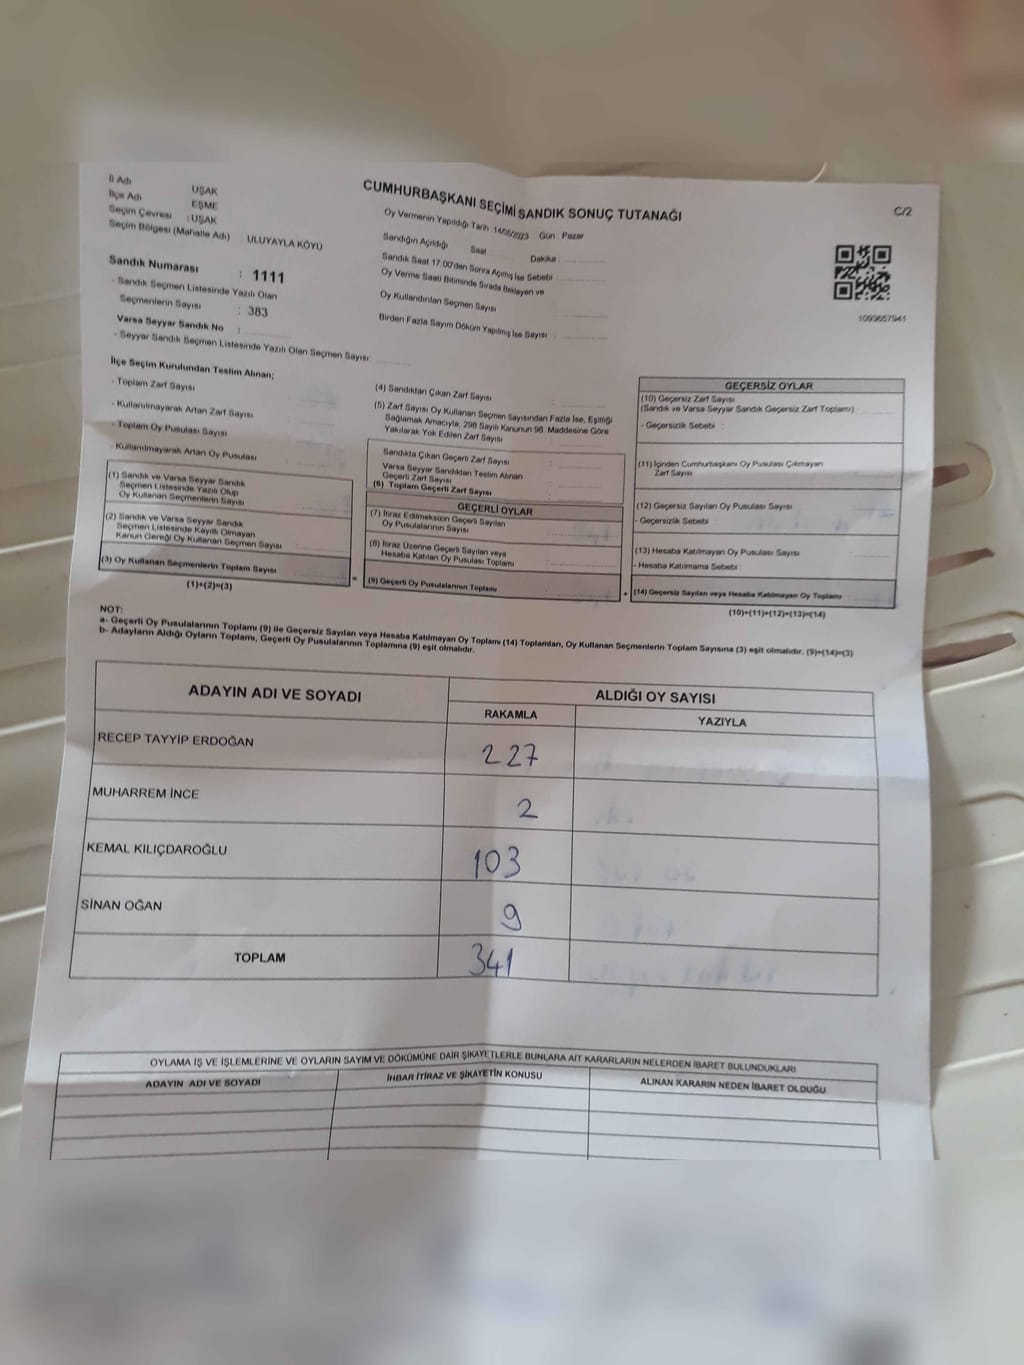 CUMHURBAŞKANI SEÇİMİ SANDIK SONUÇ TUTANAĞI
C/2
İl Adı UŞAK
İlçe Adı EŞME
Seçim Çevresi : UŞAK
Seçim Bölgesi (Mahalle Adı) : ULUYAYLA KÖYÜ
Sandık Numarası : 1111
- Sandık Seçmen Listesinde Yazılı Olan
Seçmenlerin Sayısı : 383
Varsa Seyyar Sandık No :
- Seyyar Sandık Seçmen Listesinde Yazılı Olan Seçmen Sayısı:
Oy Vermenin Yapıldığı Tarih : 14/05/2023 Gün : Pazar
Sandığın Açıldığı Saat Dakika :
Sandık Saat 17.00'den Sonra Açmış İse Sebebi :
Oy Verme Saati Bitiminde Sırada Bekleyen ve
Oy Kullandırılan Seçmen Sayısı :
Birden Fazla Sayım Döküm Yapılmış İse Sayısı :
1093657941
İlçe Seçim Kurulundan Teslim Alınan;
- Toplam Zarf Sayısı
- Kullanılmayarak Artan Zarf Sayısı
- Toplam Oy Pusulası Sayısı
- Kullanılmayarak Artan Oy Pusulası
(1) Sandık ve Varsa Seyyar Sandık
Seçmen Listesinde Yazılı Olup
Oy Kullanan Seçmenlerin Sayısı
(2) Sandık ve Varsa Seyyar Sandık
Seçmen Listesinde Kayıtlı Olmayan
Kanun Gereği Oy Kullanan Seçmen Sayısı
(3) Oy Kullanan Seçmenlerin Toplam Sayısı
(1)+(2)=(3)
(4) Sandıktan Çıkan Zarf Sayısı
(5) Zarf Sayısı Oy Kullanan Seçmen Sayısından Fazla İse, Eşitliği
Sağlamak Amacıyla, 298 Sayılı Kanunun 98. Maddesine Göre
Yakılarak Yok Edilen Zarf Sayısı
Sandıkta Çıkan Geçerli Zarf Sayısı
Varsa Seyyar Sandıktan Teslim Alınan
Geçerli Zarf Sayısı
(6) Toplam Geçerli Zarf Sayısı
GEÇERLİ OYLAR
(7) İtiraz Edilmeksizin Geçerli Sayılan
Oy Pusulalarının Sayısı
(8) İtiraz Üzerine Geçerli Sayılan veya
Hesaba Katılan Oy Pusulası Toplamı
(9) Geçerli Oy Pusulalarının Toplamı
GEÇERSİZ OYLAR
(10) Geçersiz Zarf Sayısı
(Sandık ve Varsa Seyyar Sandık Geçersiz Zarf Toplamı)
- Geçersizlik Sebebi :
(11) İçinden Cumhurbaşkanı Oy Pusulası Çıkmayan
Zarf Sayısı
(12) Geçersiz Sayılan Oy Pusulası Sayısı
- Geçersizlik Sebebi :
(13) Hesaba Katılmayan Oy Pusulası Sayısı
- Hesaba Katılmama Sebebi :
(14) Geçersiz Sayılan veya Hesaba Katılmayan Oy Toplamı
(10)+(11)+(12)+(13)=(14)
NOT:
a- Geçerli Oy Pusulalarının Toplamı (9) ile Geçersiz Sayılan veya Hesaba Katılmayan Oy Toplamı (14) Toplamları, Oy Kullanan Seçmenlerin Toplam Sayısına (3) eşit olmalıdır. (9)+(14)=(3)
b- Adayların Aldığı Oyların Toplamı, Geçerli Oy Pusulalarının Toplamına (9) eşit olmalıdır.
ADAYIN ADI VE SOYADI
ALDIĞI OY SAYISI
RAKAMLA YAZIYLA
RECEP TAYYİP ERDOĞAN 227
MUHARREM İNCE 2
KEMAL KILIÇDAROĞLU 103
SİNAN OĞAN 9
TOPLAM 341
OYLAMA İŞ VE İŞLEMLERİNE VE OYLARIN SAYIM VE DÖKÜMÜNE DAİR ŞİKAYETLERLE BUNLARA AİT KARARLARIN NELERDEN İBARET BULUNDUKLARI
ADAYIN ADI VE SOYADI İHBAR İTİRAZ VE ŞİKAYETİN KONUSU ALINAN KARARIN NEDEN İBARET OLDUĞU